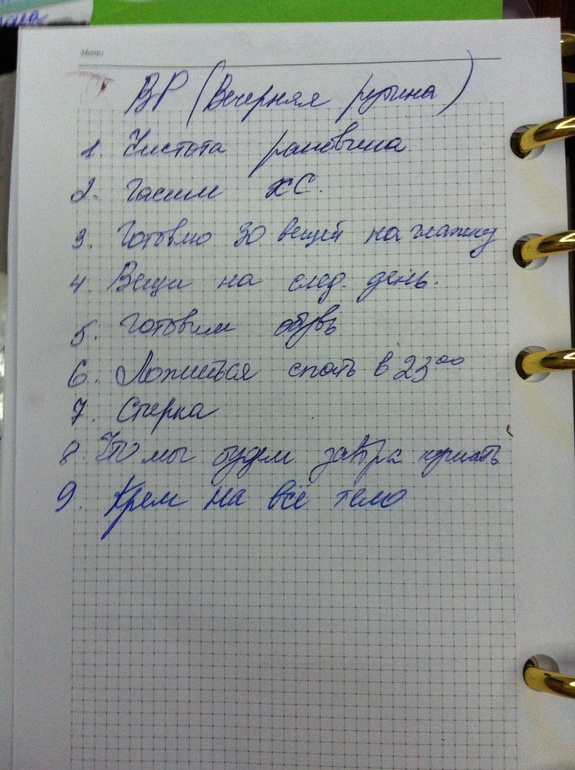 Меню
ВР (Вечерняя рутина)
1. Чистота раковина
2. Гасим ХС.
3. Готовлю 30 вещей на глажку
4 Вещи на след. день.
5. Готовим обувь
6. Ложиться спать в 23⁰⁰
7. Стирка
8 Что мы будем завтра кушать
9. Крем на всё тело